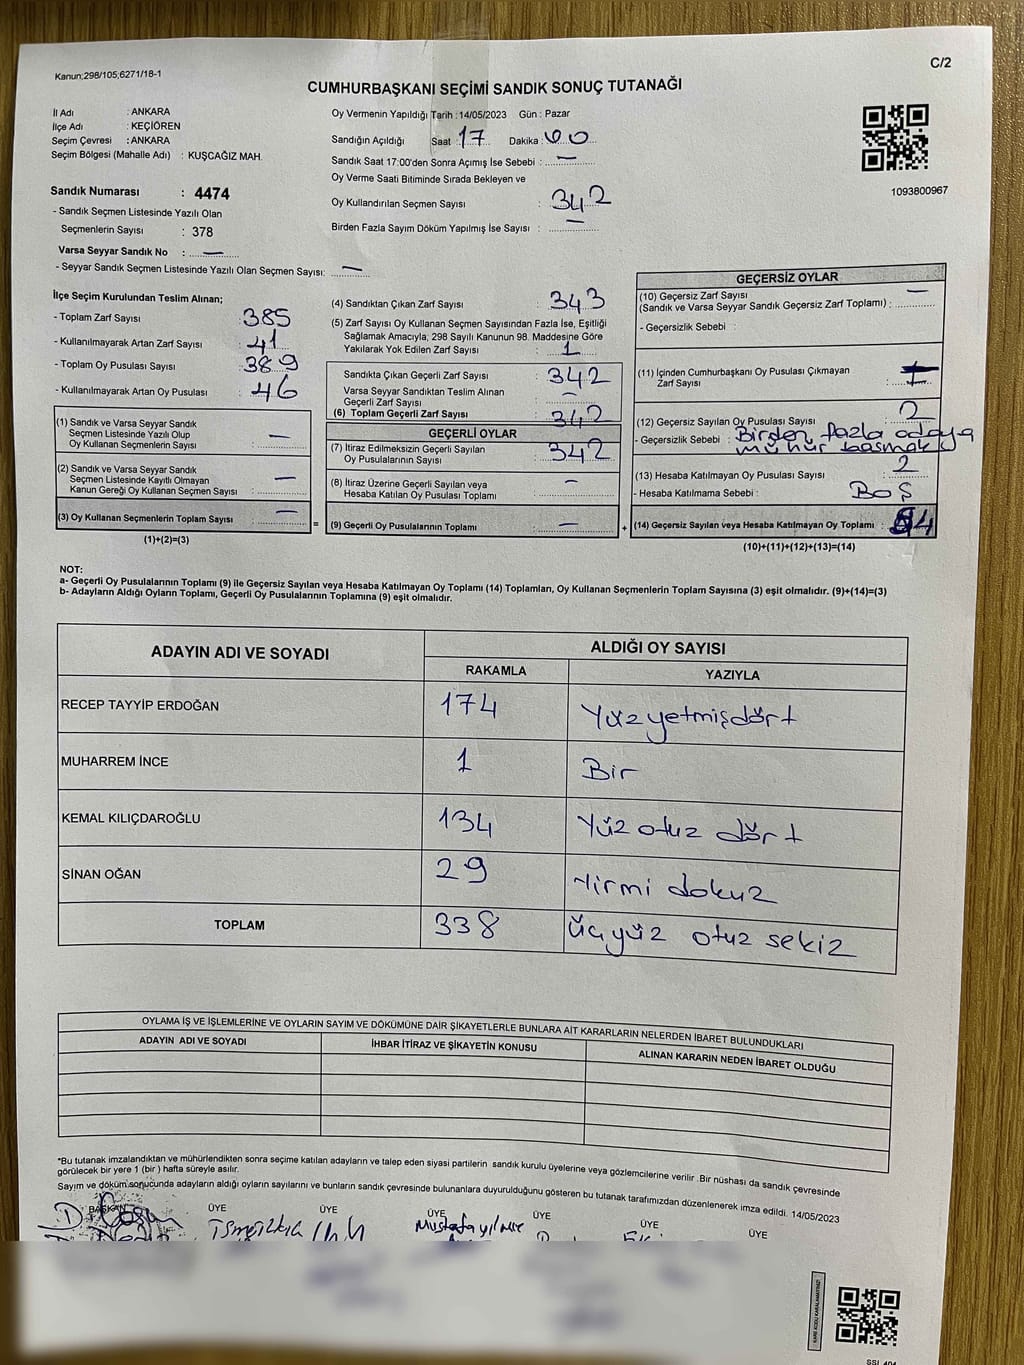 Kanun;298/105;6271/18-1
C/2
CUMHURBAŞKANI SEÇİMİ SANDIK SONUÇ TUTANAĞI
İl Adı : ANKARA
İlçe Adı : KEÇİÖREN
Seçim Çevresi : ANKARA
Seçim Bölgesi (Mahalle Adı) : KUŞCAĞIZ MAH.
Sandık Numarası : 4474
- Sandık Seçmen Listesinde Yazılı Olan
Seçmenlerin Sayısı : 378
Varsa Seyyar Sandık No : —
- Seyyar Sandık Seçmen Listesinde Yazılı Olan Seçmen Sayısı: —
Oy Vermenin Yapıldığı Tarih : 14/05/2023 Gün : Pazar
Sandığın Açıldığı Saat : 17 Dakika : 00
Sandık Saat 17:00'den Sonra Açımış İse Sebebi : —
Oy Verme Saati Bitiminde Sırada Bekleyen ve
Oy Kullandırılan Seçmen Sayısı : 342
Birden Fazla Sayım Döküm Yapılmış İse Sayısı : —
1093800967
İlçe Seçim Kurulundan Teslim Alınan;
- Toplam Zarf Sayısı : 385
- Kullanılmayarak Artan Zarf Sayısı : 41
- Toplam Oy Pusulası Sayısı : 389
- Kullanılmayarak Artan Oy Pusulası : 46
(1) Sandık ve Varsa Seyyar Sandık
Seçmen Listesinde Yazılı Olup
Oy Kullanan Seçmenlerin Sayısı : —
(2) Sandık ve Varsa Seyyar Sandık
Seçmen Listesinde Kayıtlı Olmayan
Kanun Gereği Oy Kullanan Seçmen Sayısı : —
(3) Oy Kullanan Seçmenlerin Toplam Sayısı : —
(1)+(2)=(3)
=
(4) Sandıktan Çıkan Zarf Sayısı : 343
(5) Zarf Sayısı Oy Kullanan Seçmen Sayısından Fazla İse, Eşitliği
Sağlamak Amacıyla; 298 Sayılı Kanunun 98. Maddesine Göre
Yakılarak Yok Edilen Zarf Sayısı : 1
Sandıkta Çıkan Geçerli Zarf Sayısı : 342
Varsa Seyyar Sandıktan Teslim Alınan
Geçerli Zarf Sayısı : —
(6) Toplam Geçerli Zarf Sayısı : 342
GEÇERLİ OYLAR
(7) İtiraz Edilmeksizin Geçerli Sayılan
Oy Pusulalarının Sayısı : 342
(8) İtiraz Üzerine Geçerli Sayılan veya
Hesaba Katılan Oy Pusulaları Toplamı : —
(9) Geçerli Oy Pusulalarının Toplamı : —
+
GEÇERSİZ OYLAR
(10) Geçersiz Zarf Sayısı
(Sandık ve Varsa Seyyar Sandık Geçersiz Zarf Toplamı) : —
- Geçersizlik Sebebi :
(11) İçinden Cumhurbaşkanı Oy Pusulası Çıkmayan
Zarf Sayısı :
(12) Geçersiz Sayılan Oy Pusulası Sayısı : 2
- Geçersizlik Sebebi : Birden fazla adaya
mühür basmak
(13) Hesaba Katılmayan Oy Pusulası Sayısı : 2
- Hesaba Katılmama Sebebi : BOŞ
(14) Geçersiz Sayılan veya Hesaba Katılmayan Oy Toplamı : 4
(10)+(11)+(12)+(13)=(14)
NOT:
a- Geçerli Oy Pusulalarının Toplamı (9) ile Geçersiz Sayılan veya Hesaba Katılmayan Oy Toplamı (14) Toplamları, Oy Kullanan Seçmenlerin Toplam Sayısına (3) eşit olmalıdır. (9)+(14)=(3)
b- Adayların Aldığı Oyların Toplamı, Geçerli Oy Pusulalarının Toplamına (9) eşit olmalıdır.
ADAYIN ADI VE SOYADI ALDIĞI OY SAYISI
RAKAMLA YAZIYLA
RECEP TAYYİP ERDOĞAN 174 Yüz yetmişdört
MUHARREM İNCE 1 Bir
KEMAL KILIÇDAROĞLU 134 Yüz otuz dört
SİNAN OĞAN 29 Yirmi dokuz
TOPLAM 338 Üçyüz otuz sekiz
OYLAMA İŞ VE İŞLEMLERİNE VE OYLARIN SAYIM VE DÖKÜMÜNE DAİR ŞİKAYETLERLE BUNLARA AİT KARARLARIN NELERDEN İBARET BULUNDUKLARI
ADAYIN ADI VE SOYADI İHBAR İTİRAZ VE ŞİKAYETİN KONUSU ALINAN KARARIN NEDEN İBARET OLDUĞU
*Bu tutanak imzalandıktan ve mühürlendikten sonra seçime katılan adayların ve talep eden siyasi partilerin sandık kurulu üyelerine veya gözlemcilerine verilir .Bir nüshası da sandık çevresinde
görülecek bir yere 1 (bir ) hafta süreyle asılır.
Sayım ve döküm sonucunda adayların aldığı oyların sayılarını ve bunların sandık çevresinde bulunanlara duyurulduğunu gösteren bu tutanak tarafımızdan düzenlenerek imza edildi. 14/05/2023
BAŞKAN ÜYE ÜYE ÜYE ÜYE ÜYE ÜYE
Mustafa Yılmaz